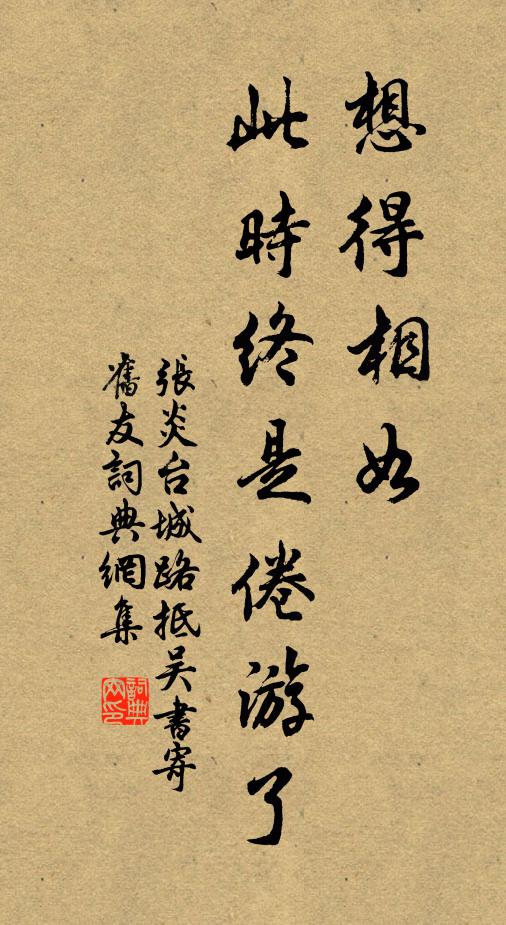 想得相如
此時終是倦游了
張炎台城路抵吴書寄
舊友詞典網集
詞典
网印